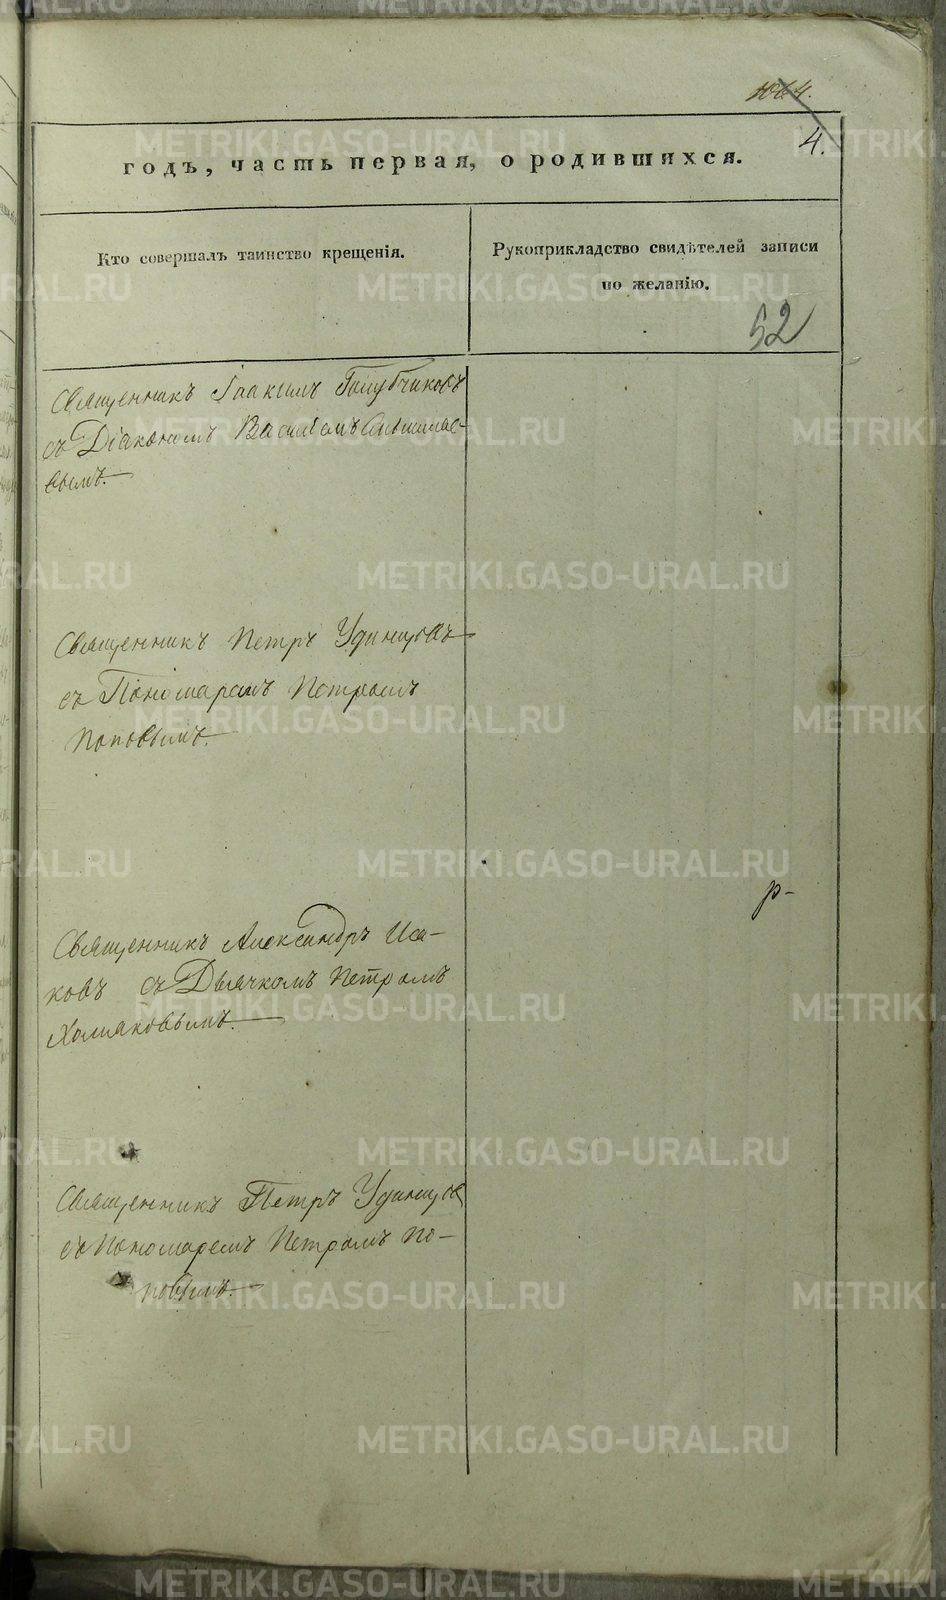 1064.
4.
годъ, часть первая, о родившихся.
Кто совершалъ таинство крещенія.
Рукоприкладство свидѣтелей записи
по желанію.
52
Священникъ Іоакимъ Голубчиковъ
съ Діакономъ Василіемъ
вымъ.
Священникъ Петръ Удинцовъ
съ Пономаремъ Петромъ
Поповымъ.
р-
Священникъ Александръ Иса-
ковъ съ Дьячкомъ Петромъ
Холмаковымъ.
Священникъ Петръ Удинцов
съ Пономаремъ Петромъ По-
повымъ.
METRIKI.GASO-URAL.RU